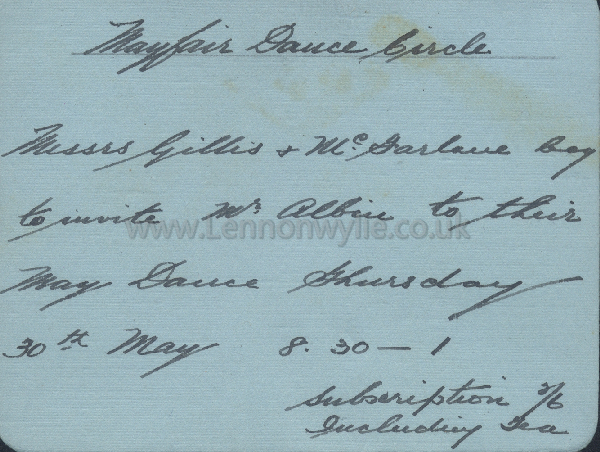 Mayfair Dance Circle
Messrs Gillis & Mc Farlane beg
to invite Mr Albin to their
www.Lennonwylie.co.uk
May Dance Thursday
30th May 8.30 — 1
Subscription 2/6
Including Tea